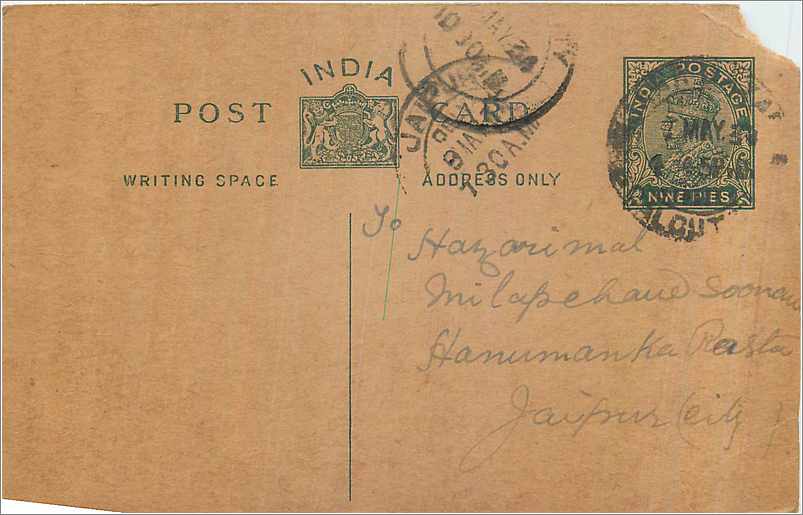 INDIA
POST CARD
WRITING SPACE
ADDRESS ONLY
INDIA POSTAGE
NINE PIES
MAY.24
JAIPUR
7.30A.M.
MAY
To
Hazarimal
Milapchand
Hanumanka Rasta
Jaipur City